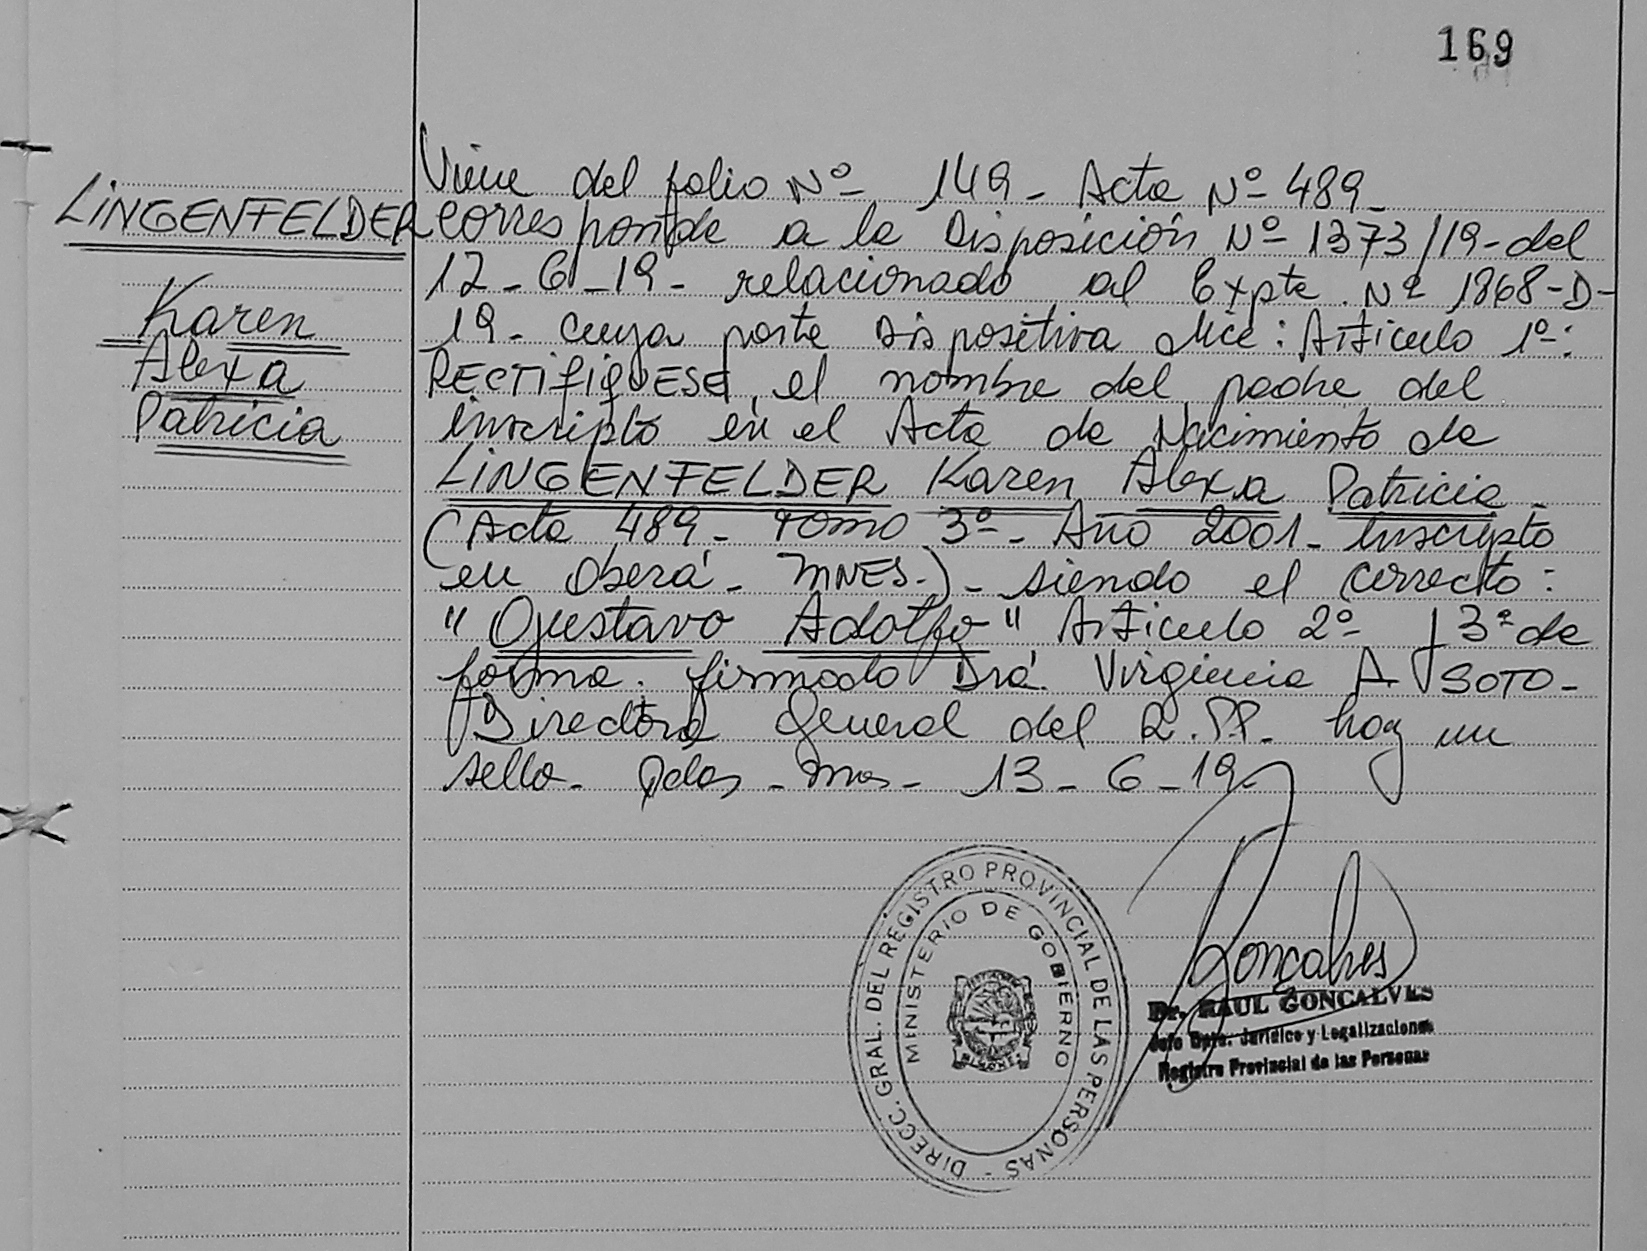 169
LINGENFELDER
Karen
Alexa
Patricia
Viene del folio Nº 149- Acta Nº 489-
corresponde a la Disposición Nº 1373/19- del
12-6-19- relacionado al Expte. Nº 1868-D-
19- cuya parte dispositiva dice: Artículo 1º:
RECTIFIQUESE, el nombre del padre del
inscripto en el Acta de Nacimiento de
LINGENFELDER Karen Alexa Patricia-
(Acta 489- Tomo 3º- Año 2001- Inscripto
en Oberá- MNES.)- siendo el correcto:
"Gustavo Adolfo" Artículo 2º- y 3º de
forma. firmado Dra. Virginia A SOTO-
Directora General del R.P.P. hay un
sello- Pdas- Mnes- 13-6-19-
DIRECC. GRAL. DEL REGISTRO PROVINCIAL DE LAS PERSONAS -
MINISTERIO DE GOBIERNO
MISIONES
Goncalves
Dr. RAUL GONCALVES
Jefe Dpto. Jurídico y Legalizaciones
Registro Provincial de las Personas